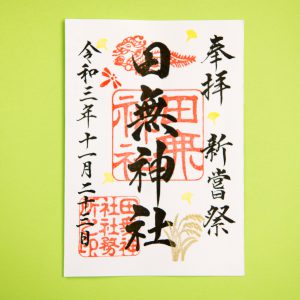 奉拝 新嘗祭
田無神社
令和三年十一月二十三日
田無神社
田無神社社務所印